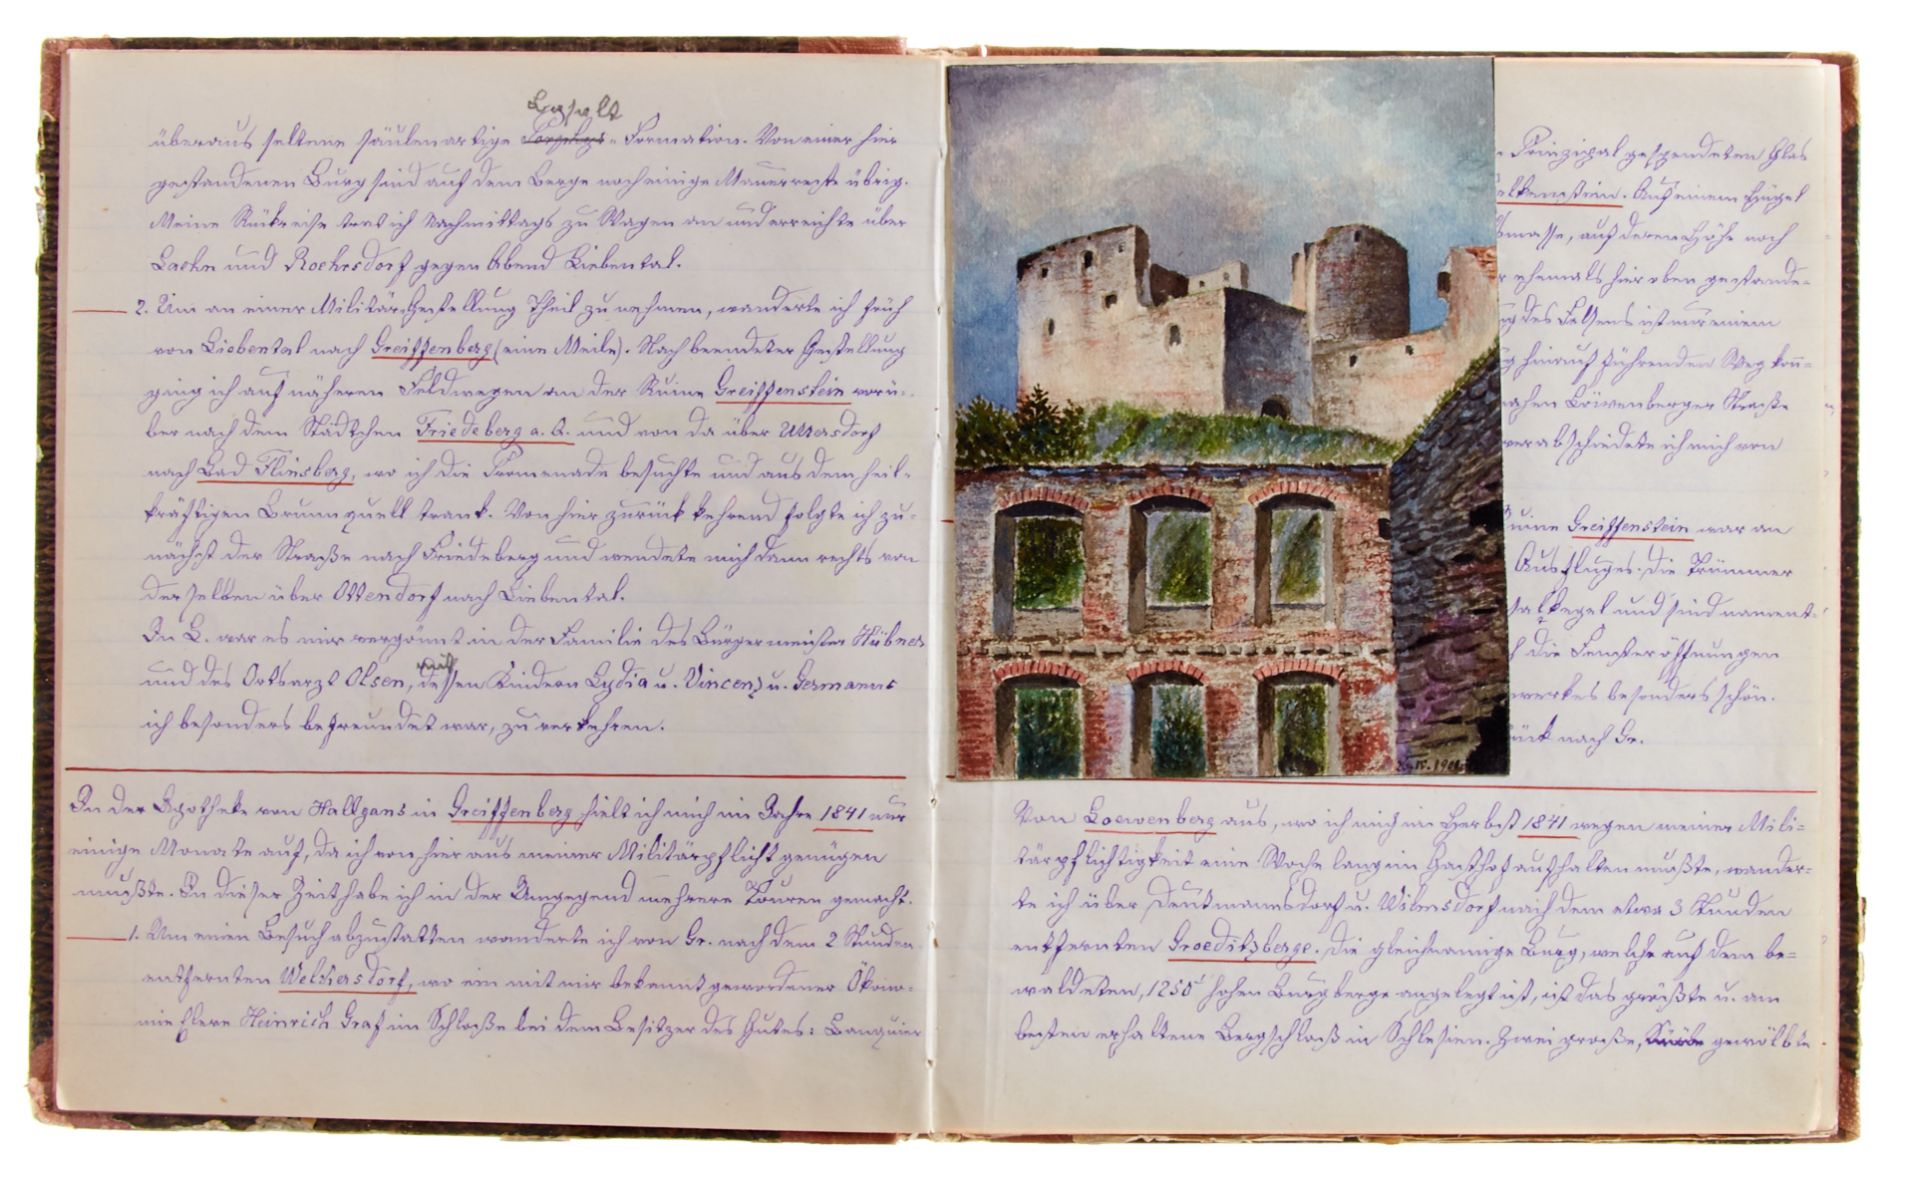 Basalt
überaus seltene säulenartige - Formation. Von einer hier
gestandenen Burg sind auf dem Berge noch einige Mauerreste übrig.
Meine Rükreise trat ich Nachmittags zu Wagen an und erreichte über
Laehn und Roehrsdorf gegen Abend Liebental.
2. Um an einer Militär-Gestellung Theil zu nehmen, wanderte ich früh
von Liebental nach Greiffenberg (eine Meile). Nach beendeter Gestellung
ging ich auf näheren Feldwegen an der Ruine Greiffenstein vorü-
ber nach dem Städtchen Friedeberg a. Q. und von da über Ullersdorf
nach Bad Flinsberg, wo ich die Promenade besuchte und aus dem heil-
kräftigen Brunnquell trank. Von hier zurück kehrend folgte ich zu-
nächst der Straße nach Friedeberg und wendete mich dann rechts von
derselben über Ottendorf nach Liebental.
In L. war es mir vergönnt in der Familie des Bürgermeister Hübner
mit
und des Ortsarzt Olsen, dessen Kindern Lydia u. Vincenz u. Germanus
ich besonders befreundet war, zu verkehren.
In der Apotheke von Hallgans in Greiffenberg hielt ich mich im Jahre 1841 nur
einige Monate auf, da ich von hier aus meiner Militärpflicht genügen
mußte. In dieser Zeit habe ich in der Umgegend mehrere Touren gemacht.
1. Um einen Besuch abzustatten wanderte ich von Gr. nach dem 2 Stunden
entfernten Welkersdorf, wo ein mit mir bekannt gewordener Ökono-
mie Eleve Heinrich Graf im Schloße bei dem Besitzer des Gutes: Banquier
Prinzipal gespendeten Glas
alkenstein. Auf einem Hügel
masse, auf deren Höhe noch
r ehemals hier oben gestande-
des Felsens ist nur einem
g hinauf führenden Weg kom̅-
nahen Löwenberger Straße
verabschiedete ich mich von
Ruine Greiffenstein war an
Ausfluges. Die Trümmer
saltkegel und sind nament-
h die Fensteröffnungen
werkes besonders schön.
ück nach Gr.
IV. 19
Von Loewenberg aus, wo ich mich im Herbst 1841 wegen meiner Mili-
tärpflichtigkeit eine Woche lang im Gasthof aufhalten mußte, wander-
te ich über Deutmannsdorf u. Wilmsdorf nach dem etwa 3 Stunden
entfernten Groeditzberge. Die gleichnamige Burg, welche auf dem be-
waldeten, 1250' hohen Burgberge angelegt ist, ist das größte u. am
besten erhaltene Bergschloß in Schlesien. Zwei große, gewölbte